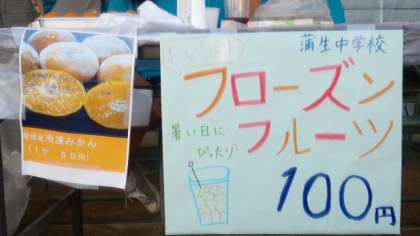 冷凍みかん
(1ケ 50円)
おいしい
蒲生中学校
フローズン
フルーツ
暑い日に
ぴったり
100円